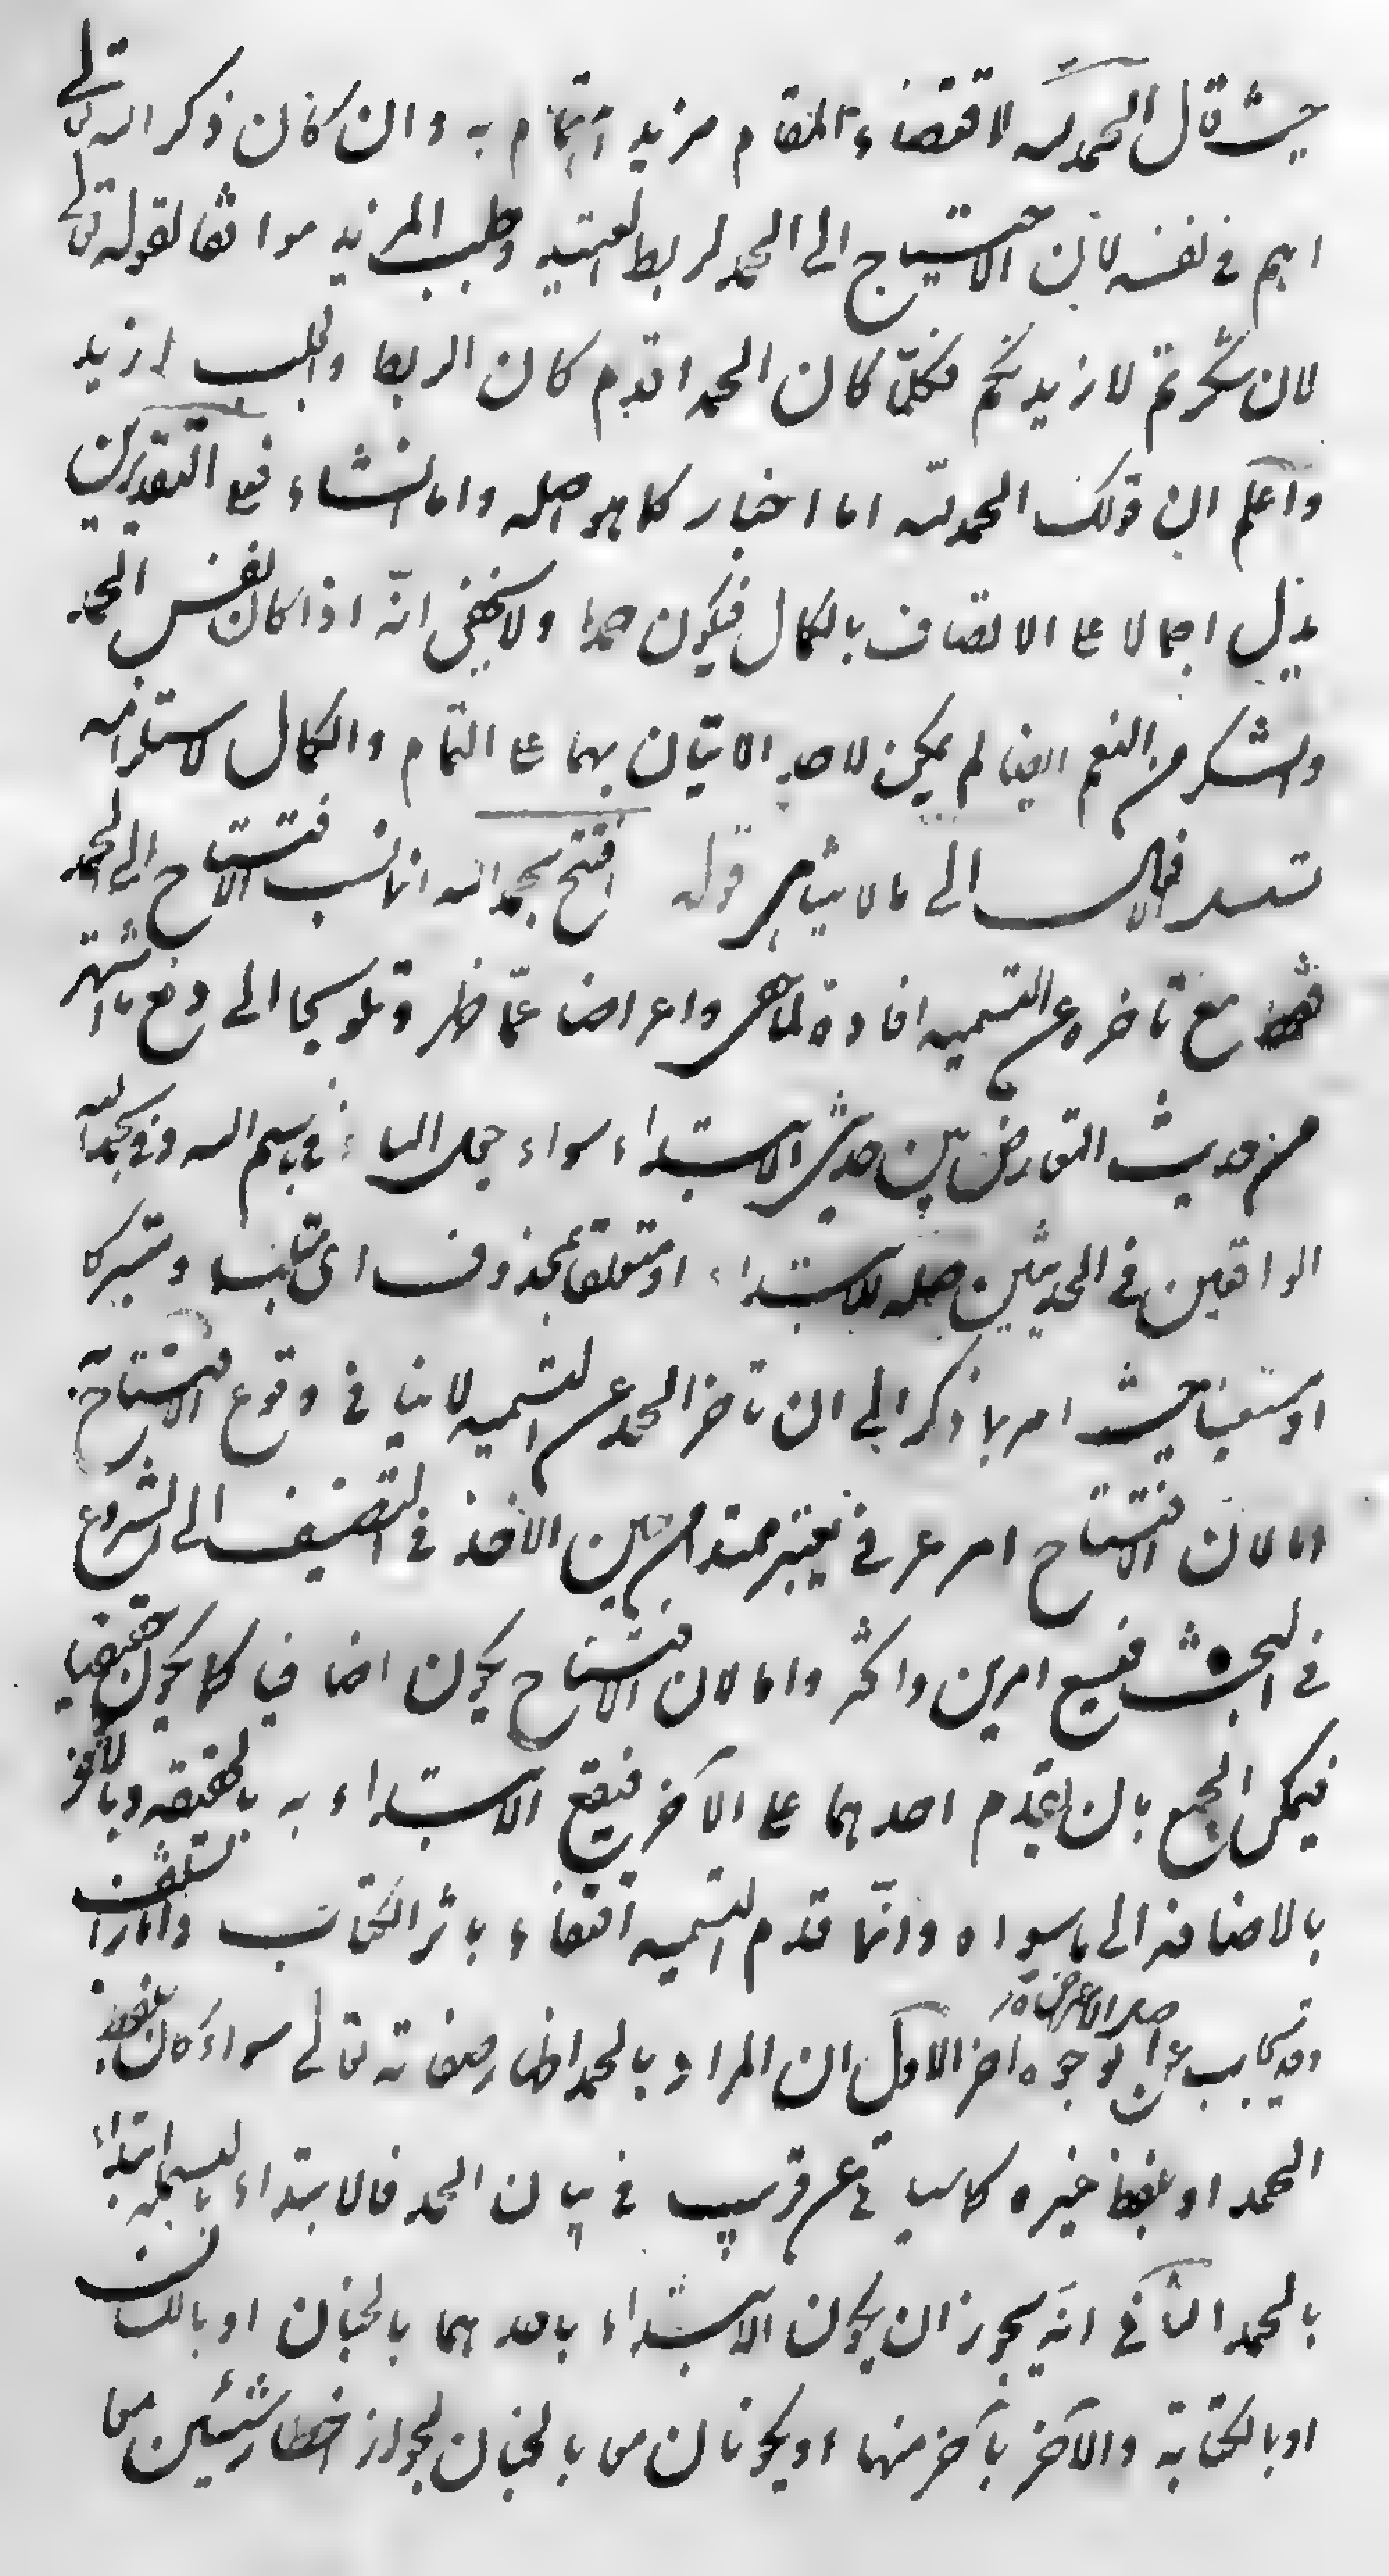 حيث قال الحمد لله لاقتضاء المقام مزيد اهتمام به وان كان ذكر الله تعالى
اهم في نفسه لان الاحتياج الى الحمد لربط العتيد وطلب المزيد موافقا لقوله تعالى
لان شكرتم لازيدنكم فكلما كان الحمد اقدم كان الربط والطلب ازيد
واعلم ان قولك الحمد لله اما اخبار كما هو اصله واما انشاء فعلى التقديرين
يدل اجمالا على الاتصاف بالكمال فيكون حمدا ولا يخفى انه اذا كان نفس الحمد
والشكر من النعم ايضا لم يمكن لاحد الاتيان بهما على التمام والكمال لاستلزامه
تسلسل الافعال الى ما لا يتناهى قوله افتتح بحمد الله انما نسب الافتتاح الى الحمد
فقط مع تأخره عن التسميه افادة لما هو واعراضا عما ظهر وتلويحا الى دفع ما اشتهر
من حديث التعارض بين حديثي الابتداء سواء جعل الباء في بسم الله وفي بحمد الله
الواقعين في الحديثين صله للابتداء او متعلقا بمحذوف اى متلبسا ومتبركا
او مستعينا حيث امر بما ذكر الى ان تاخر الحمد عن التسميه لا ينافي وقوع الافتتاح به
اما لان الافتتاح امر عرفي يعتبر ممتدا من حين الاخذ في التصنيف الى الشروع
في البحث فيسع امرين واكثر واما لان الافتتاح يكون اضافيا كما يكون حقيقيا
فيمكن الجمع بان يقدم احدهما على الآخر فيقع الابتداء به بالحقيقه وبالآخر
بالاضافه الى ما سواه وانما قدم التسميه اقتفاء باثر الكتاب والآراء السلف
وقد يجاب عن اصل الاعتراض بوجوه اخر الاول ان المراد بالحمد اظهار صفاته تعالى سواء كان بلفظ
الحمد او بلفظ غيره كما سيأتي عن قريب في بيان الحمد فالابتداء بالبسمله ابتداء
بالحمد الثاني انه يجوز ان يكون الابتداء باحدهما بالجنان او باللسان
او بالكتابة والآخر بآخر منها او يكونان معا بالجنان لجواز اخطار شيئين معا